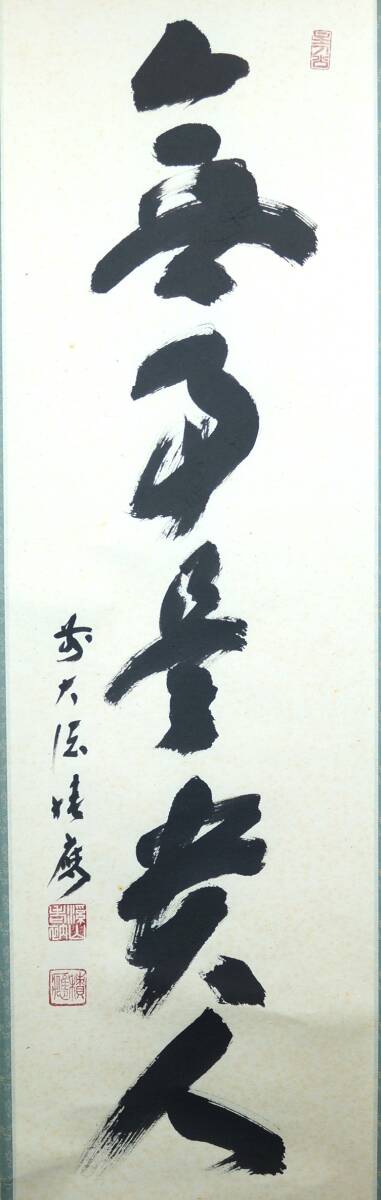 無事是貴人
前大徳積應